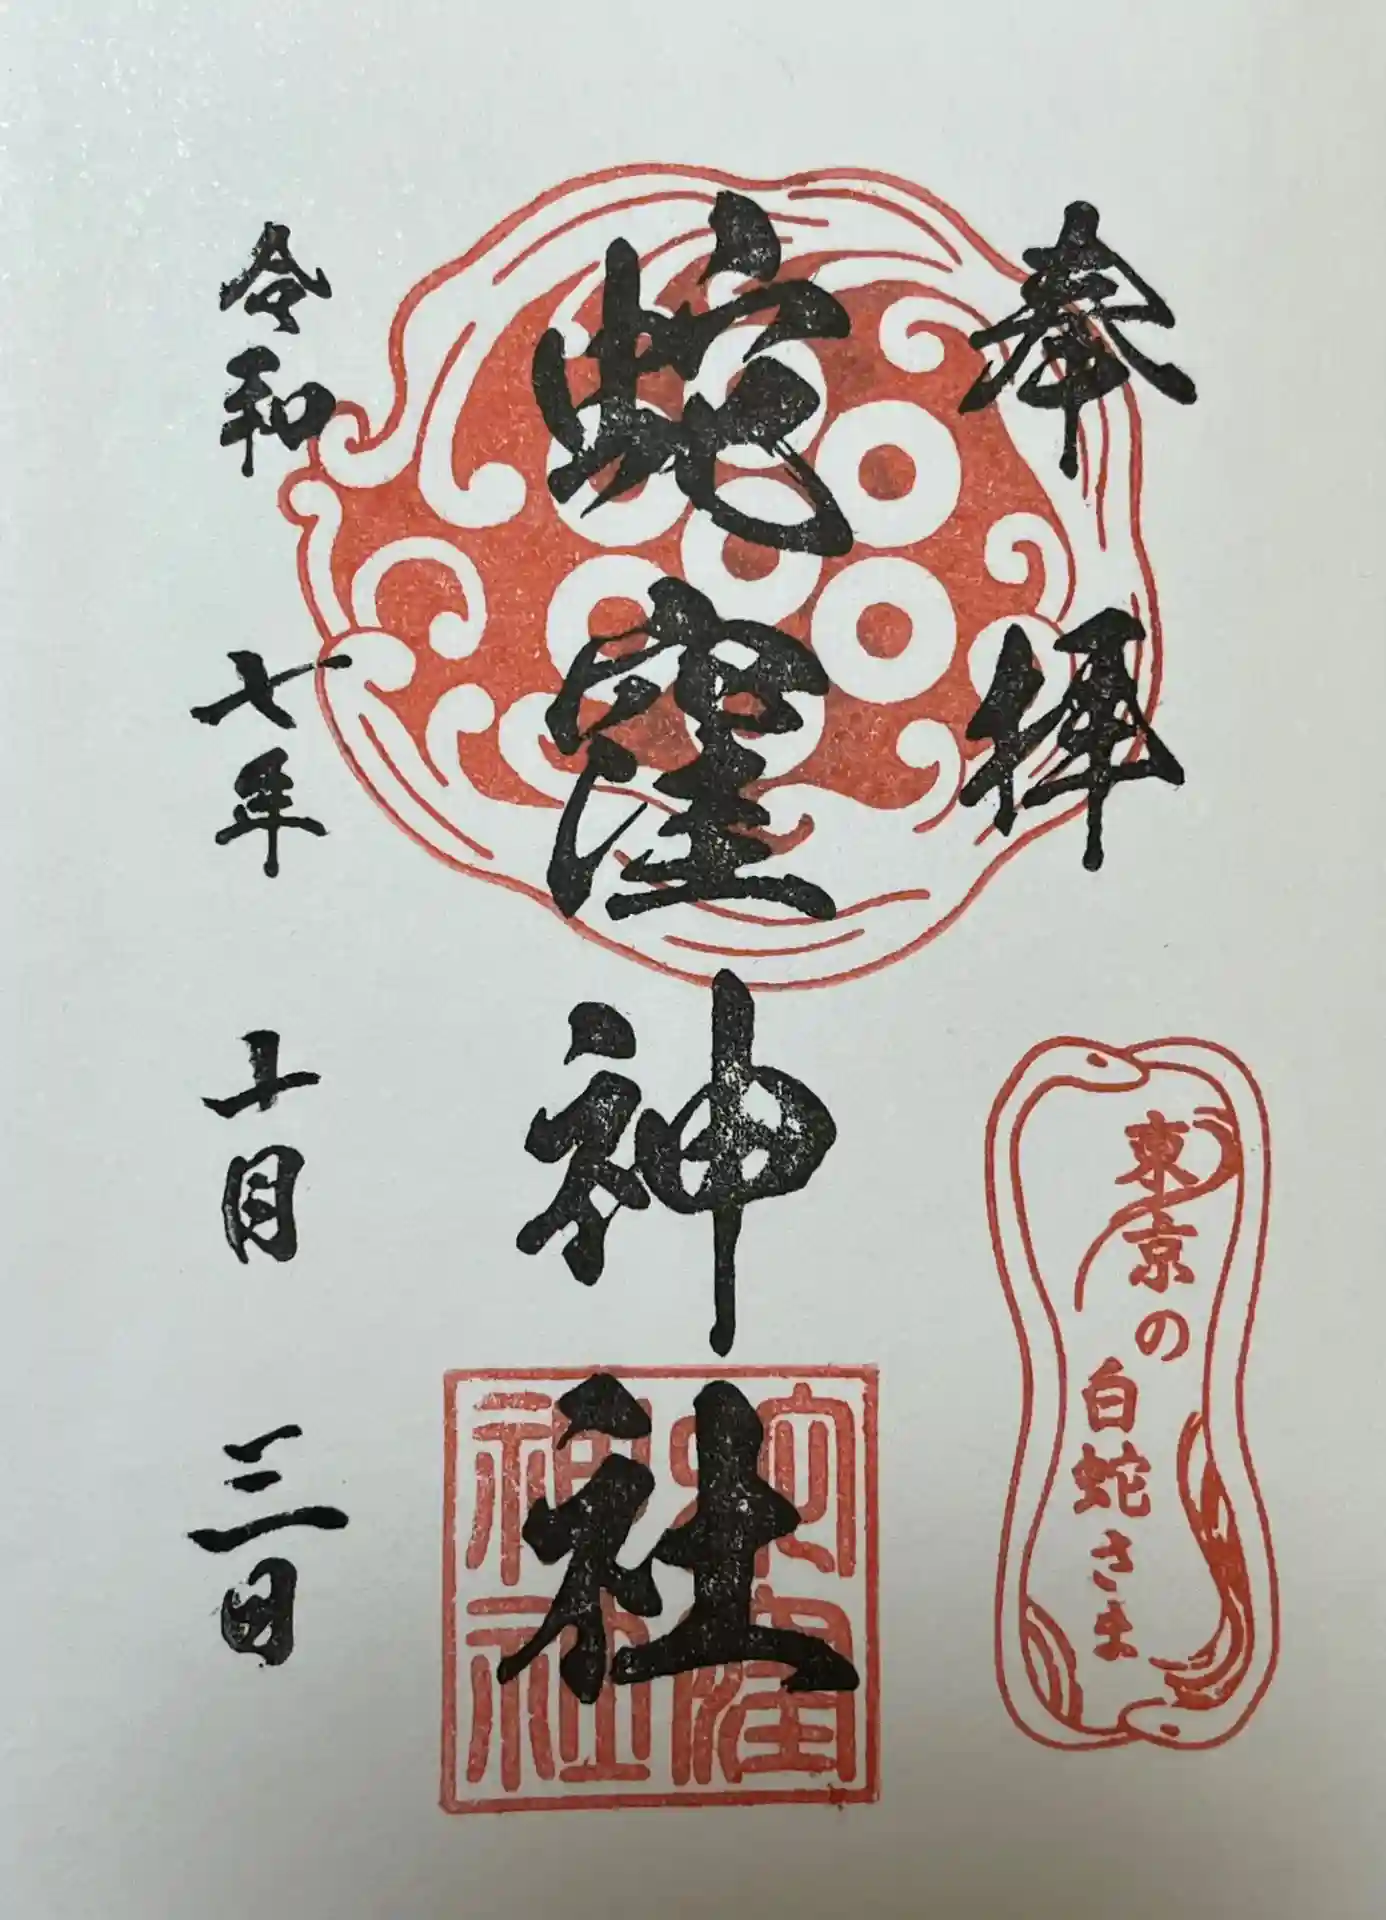 奉拝
蛇窪神社
令和七年十月三日
東京の
白蛇さま
蛇窪
神社